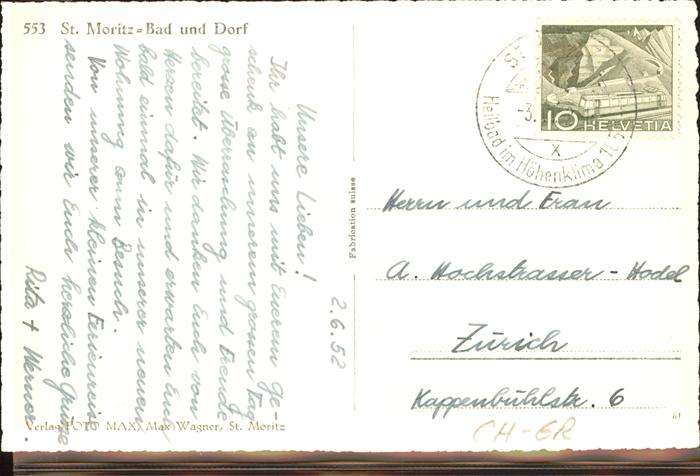 553 St. Moritz-Bad und Dorf
2.6.52
Unsere Lieben!
Ihr habt uns mit Euerem Ge-
schenk an unserem grossen Tag
grosse Überraschung und Freude
bereitet. Wir danken Euch von
Herzen dafür und erwarten Euch
bald einmal in unserer neuen
Wohnung zum Besuch.
Von unserer kleinen Ferienreise
senden wir Euch herzliche Grüsse
Rita + Werner.
Verlag FOTO MAX, Max Wagner, St. Moritz
Fabrication suisse
10 HELVETIA
Heilbad im Höhenklima
X
Herrn und Frau
A. Hochstrasser-Hodel
Zürich
Kappenbühlstr. 6
CH-GR